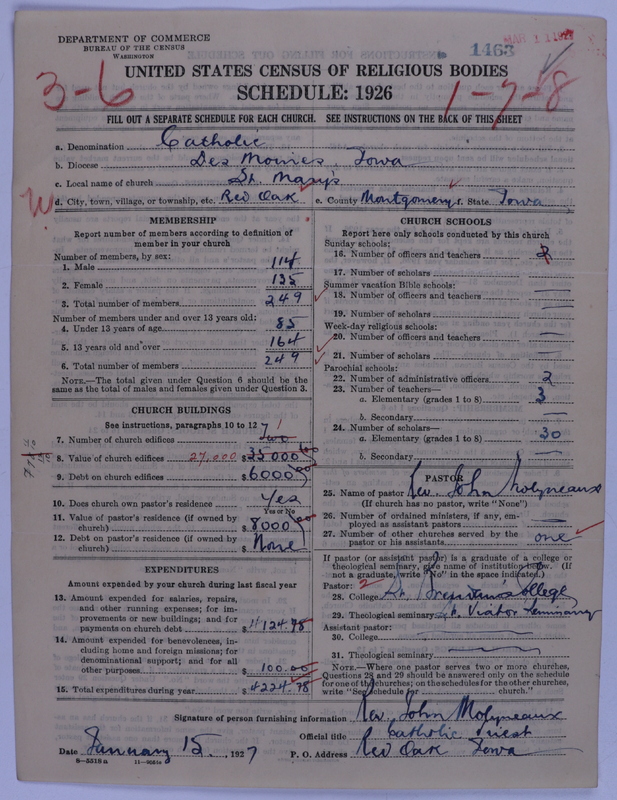 DEPARTMENT OF COMMERCE
BUREAU OF THE CENSUS
WASHINGTON
MAR 11
1463
UNITED STATES CENSUS OF RELIGIOUS BODIES
SCHEDULE: 1926
3-6
1-7-8
FILL OUT A SEPARATE SCHEDULE FOR EACH CHURCH. SEE INSTRUCTIONS ON THE BACK OF THIS SHEET
a. Denomination Catholic
b. Diocese Des Moines, Iowa
c. Local name of church St. Mary's
d. City, town, village, or township, etc. Red Oak e. County Montgomery f. State Iowa
MEMBERSHIP
Report number of members according to definition of
member in your church
Number of members, by sex:
1. Male 114
2. Female 135
3. Total number of members 249
Number of members under and over 13 years old:
4. Under 13 years of age 85
5. 13 years old and over 164
6. Total number of members 249
NOTE.—The total given under Question 6 should be the
same as the total of males and females given under Question 3.
CHURCH BUILDINGS
See instructions, paragraphs 10 to 12
7. Number of church edifices two 1
8. Value of church edifices 27,000 $35000 00
9. Debt on church edifices $6000 00
10. Does church own pastor's residence Yes
Yes or No
11. Value of pastor's residence (if owned by
church) $8000 00
12. Debt on pastor's residence (if owned by
church) $None
EXPENDITURES
Amount expended by your church during last fiscal year
13. Amount expended for salaries, repairs,
and other running expenses; for im-
provements or new buildings; and for
payments on church debt $4124.98
14. Amount expended for benevolences, in-
cluding home and foreign missions; for
denominational support; and for all
other purposes $100.00
15. Total expenditures during year $4224.98
CHURCH SCHOOLS
Report here only schools conducted by this church
Sunday schools:
16. Number of officers and teachers 2
17. Number of scholars
Summer vacation Bible schools:
18. Number of officers and teachers
19. Number of scholars
Week-day religious schools:
20. Number of officers and teachers
21. Number of scholars
Parochial schools:
22. Number of administrative officers 2
23. Number of teachers—
a. Elementary (grades 1 to 8) 3
b. Secondary
24. Number of scholars—
a. Elementary (grades 1 to 8) 30
b. Secondary
PASTOR
25. Name of pastor Rev. John Molyneaux
(If church has no pastor, write "None")
26. Number of ordained ministers, if any, em-
ployed as assistant pastors
27. Number of other churches served by the
pastor or his assistants one
If pastor (or assistant pastor) is a graduate of a college or
theological seminary, give name of institution below. (If
not a graduate, write "No" in the space indicated.)
Pastor: 2
28. College College
29. Theological seminary St. Viator Seminary
Assistant pastor:
30. College
31. Theological seminary
NOTE.—Where one pastor serves two or more churches,
Questions 28 and 29 should be answered only on the schedule
for one of the churches; on the schedules for the other churches,
write "See Schedule for church."
Signature of person furnishing information Rev. John Molyneaux
Official title Catholic Priest
Date January 15, 1927 P. O. Address Red Oak Iowa
8—5518a 11—9051a